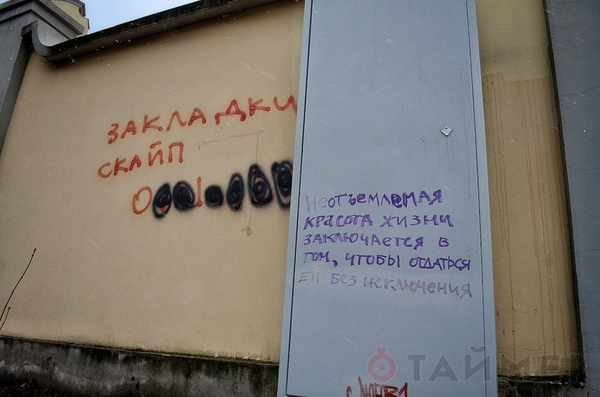 ЗАКЛАДКИ
СКАЙП
НеОТЪЕМЛЕМАЯ
КРАСОТА ЖИЗНИ
ЗАКЛЮЧАЕТСЯ В
ТОМ, ЧТОБЫ ОТДАТЬСЯ
ЕЙ БЕЗ ИСКЛЮЧЕНИЯ
ТАЙМЕР